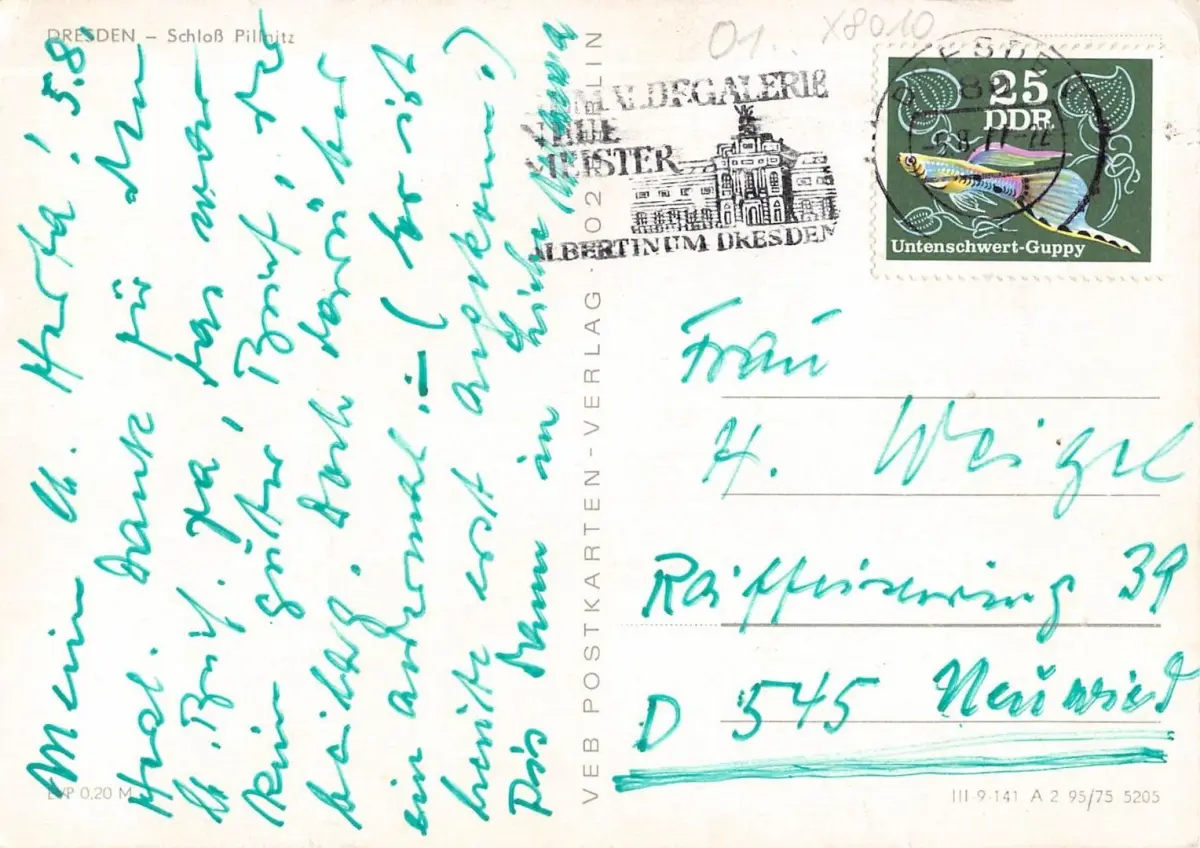 DRESDEN – Schloß Pillnitz
01.. X8010
GEMÄLDEGALERIE
NEUE
MEISTER
ALBERTINUM DRESDEN
DRESDEN
25
DDR
Untenschwert-Guppy
Mein lb. Herta! 5.8.
Hzl. Dank für den
lb. Brief. Ja, das war
kein guter Brief, der
beilag. Doch darüber
ein andermal. – (Er ist
heute erst angekomm.)
Bis dann in Liebe
VEB POSTKARTEN-VERLAG 102 BERLIN
Frau
H. Weigel
Raiffeisenring 39
D 545 Neuwied
EVP 0,20 M
III-9-141 A 2 95/75 5205